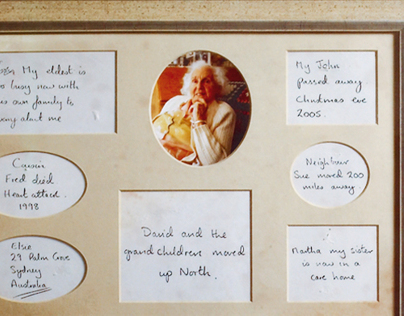 My eldest is
busy now with
own family to
worry about me
My John
passed away
Christmas eve
2005.
Cousin
Fred died
Heart attack.
1998
Neighbour
Sue moved 200
miles away
David and the
grandchildren moved
up North.
Elsie
29 Palm Cove
Sydney
Australia
Martha my sister
is now in a
care home